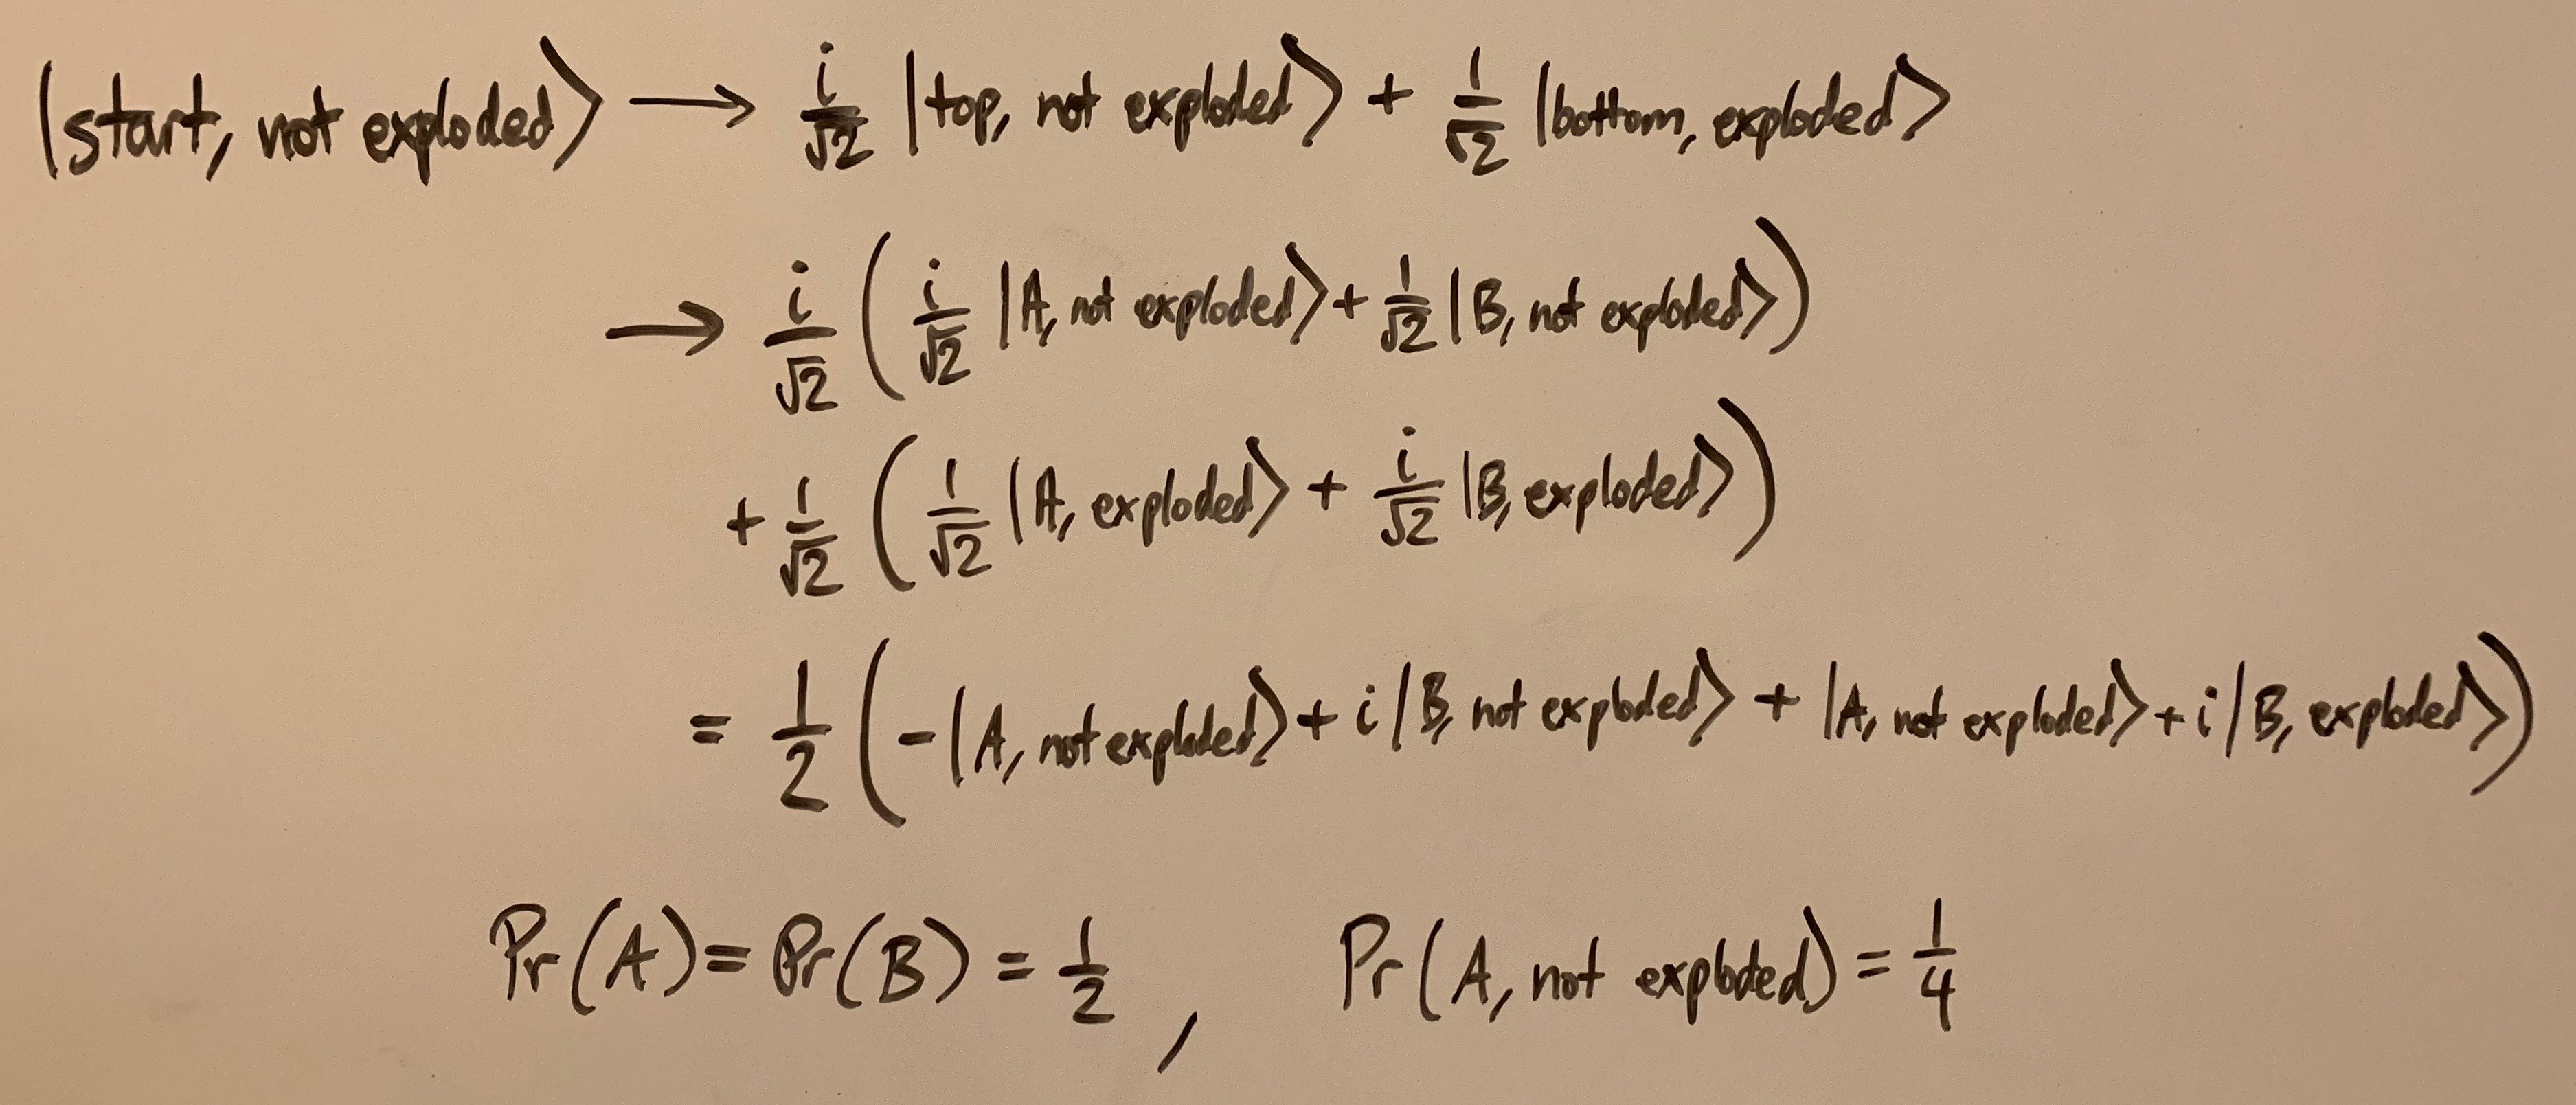 |start, not exploded⟩ → i/√2 |top, not exploded⟩ + 1/√2 |bottom, exploded⟩
→ i/√2 ( i/√2 |A, not exploded⟩ + 1/√2 |B, not exploded⟩ )
+ 1/√2 ( 1/√2 |A, exploded⟩ + i/√2 |B, exploded⟩ )
= 1/2 ( -|A, not exploded⟩ + i |B, not exploded⟩ + |A, not exploded⟩ + i |B, exploded⟩ )
Pr(A) = Pr(B) = 1/2 , Pr(A, not exploded) = 1/4